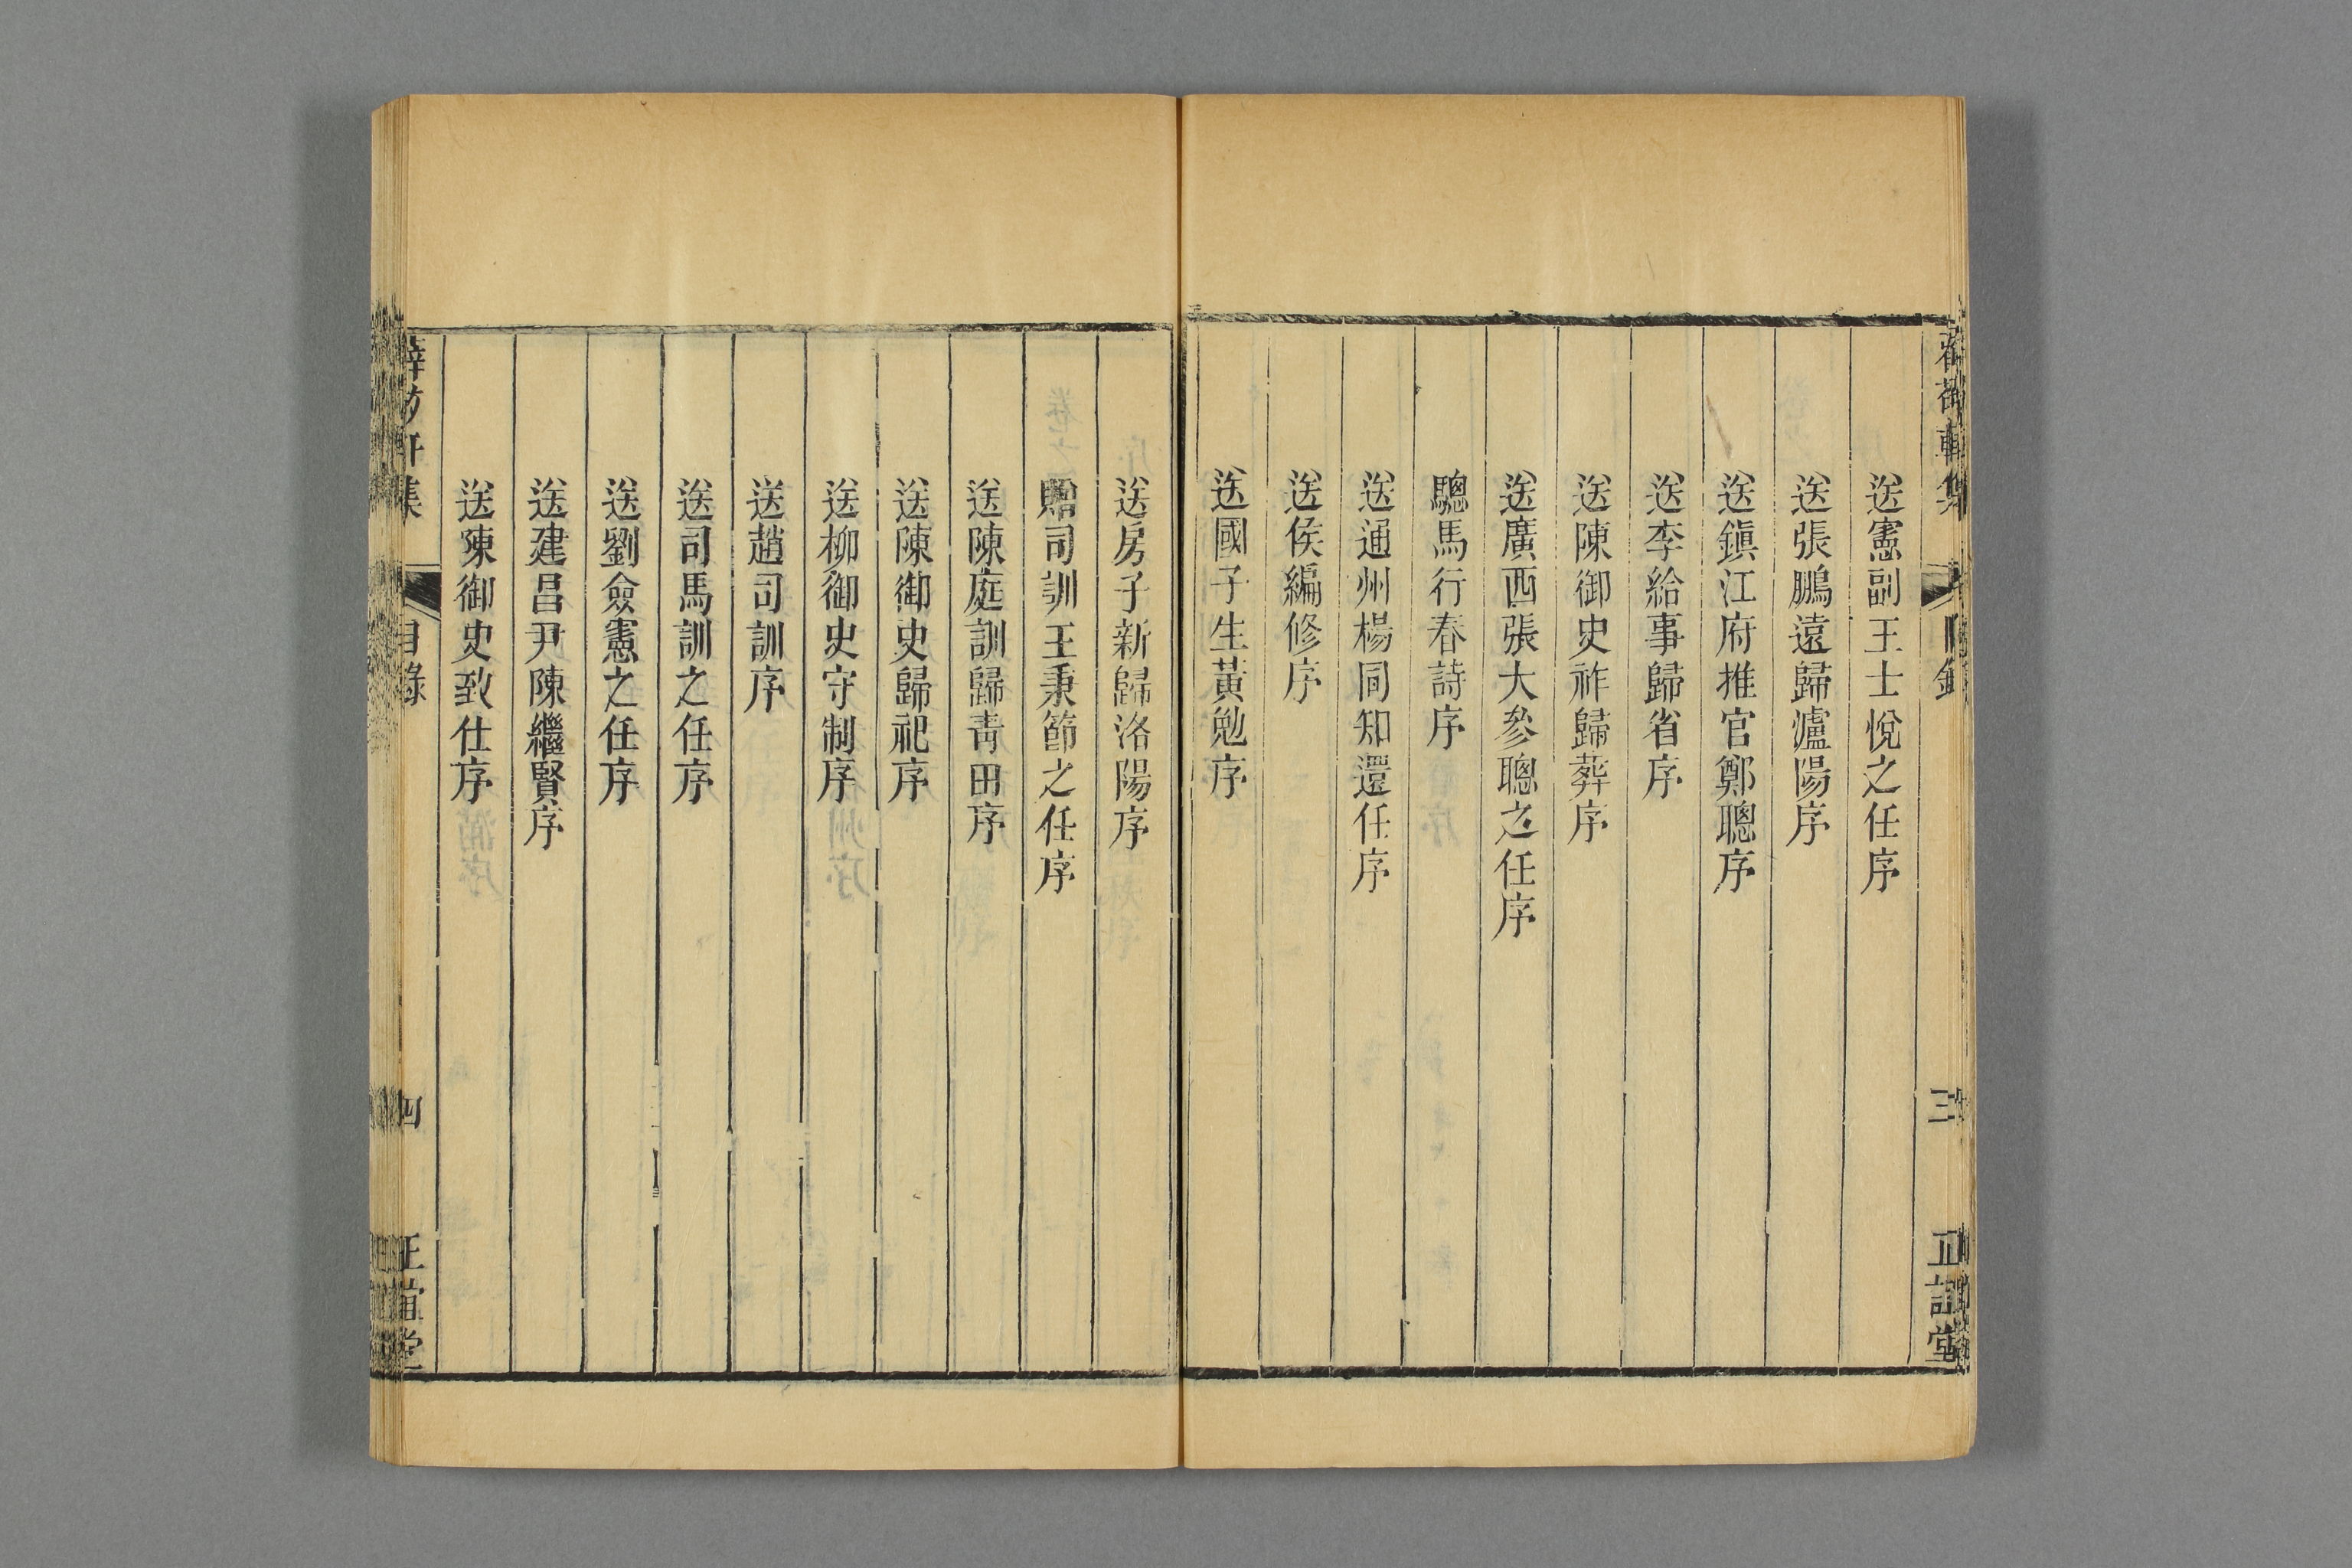 送憲副王士悅之任序
送張鵬遠歸瀘陽序
送鎭江府推官鄭聰序
送李給事歸省序
送陳御史祚歸葬序
送廣西張大參聰之任序
驄馬行春詩序
送通州楊同知還任序
送侯編修序
送國子生黃勉序
送房子新歸洛陽序
贈司訓王秉節之任序
送陳庭訓歸靑田序
送陳御史歸祀序
送柳御史守制序
送趙司訓序
送司馬訓之任序
送劉僉憲之任序
送建昌尹陳繼賢序
送陳御史致仕序
目錄
四
三